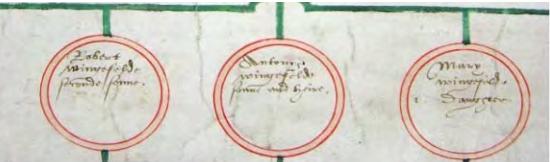 Robert
Wingefelde
seconde sonne.
Antony
Wingefelde
sonne and heire.
Mary
Wingefeld.
1. Daughter